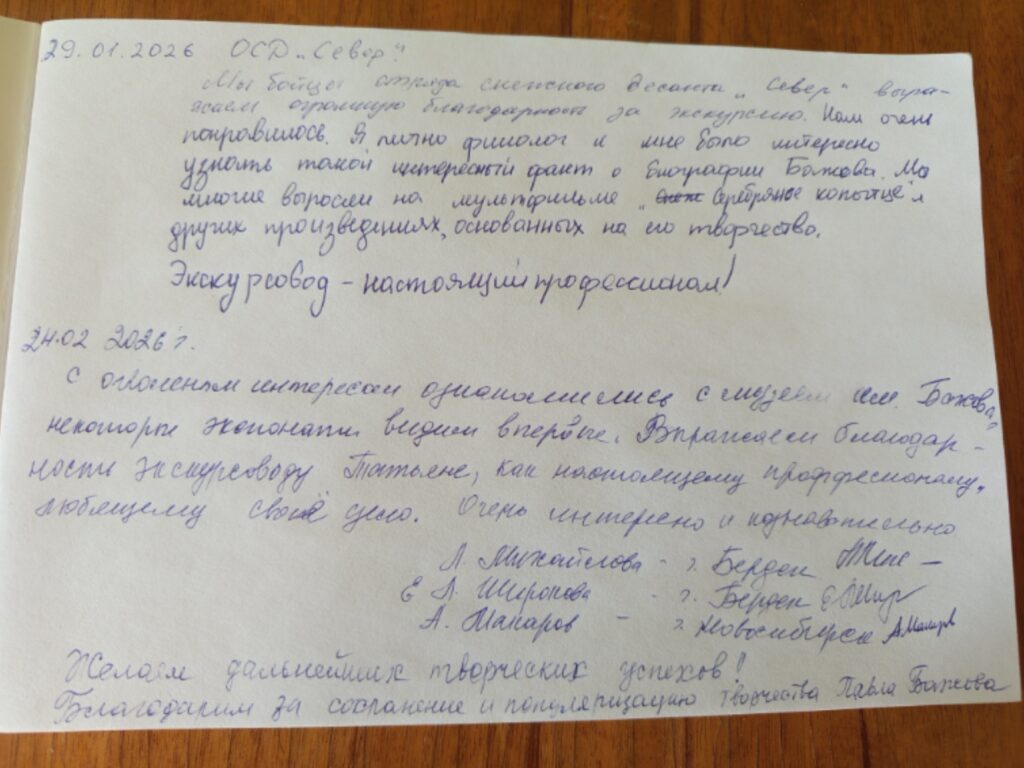 29.01.2026 ОСД „Север".
Мы бойцы отряда снежного десанта „Север" выра-
жаем огромную благодарность за экскурсию. Нам очень
понравилось. Я лично филолог и мне было интересно
узнать такой интересный факт о биографии Бажова. Мы
многие выросли на мультфильме „Серебряное копытце" и
других произведениях, основанных на его творчество.
Экскурсовод - настоящий профессионал!
24.02 2026 г.
С огромным интересом ознакомились с музеем им. Бажова,
некоторые экспонаты видим впервые. Выражаем благодар-
ности экскурсоводу Татьяне, как настоящему проффесионалу,
любящему своё дело. Очень интерено и познавательно
Л. Михайлова - г. Бердск
Е Л. Широкова - г. Бердск
А. Макаров - г. Новосибирск
Желаем дальнейших творческих успехов!
Благодарим за сохранение и популяризацию творчества Павла Бажова